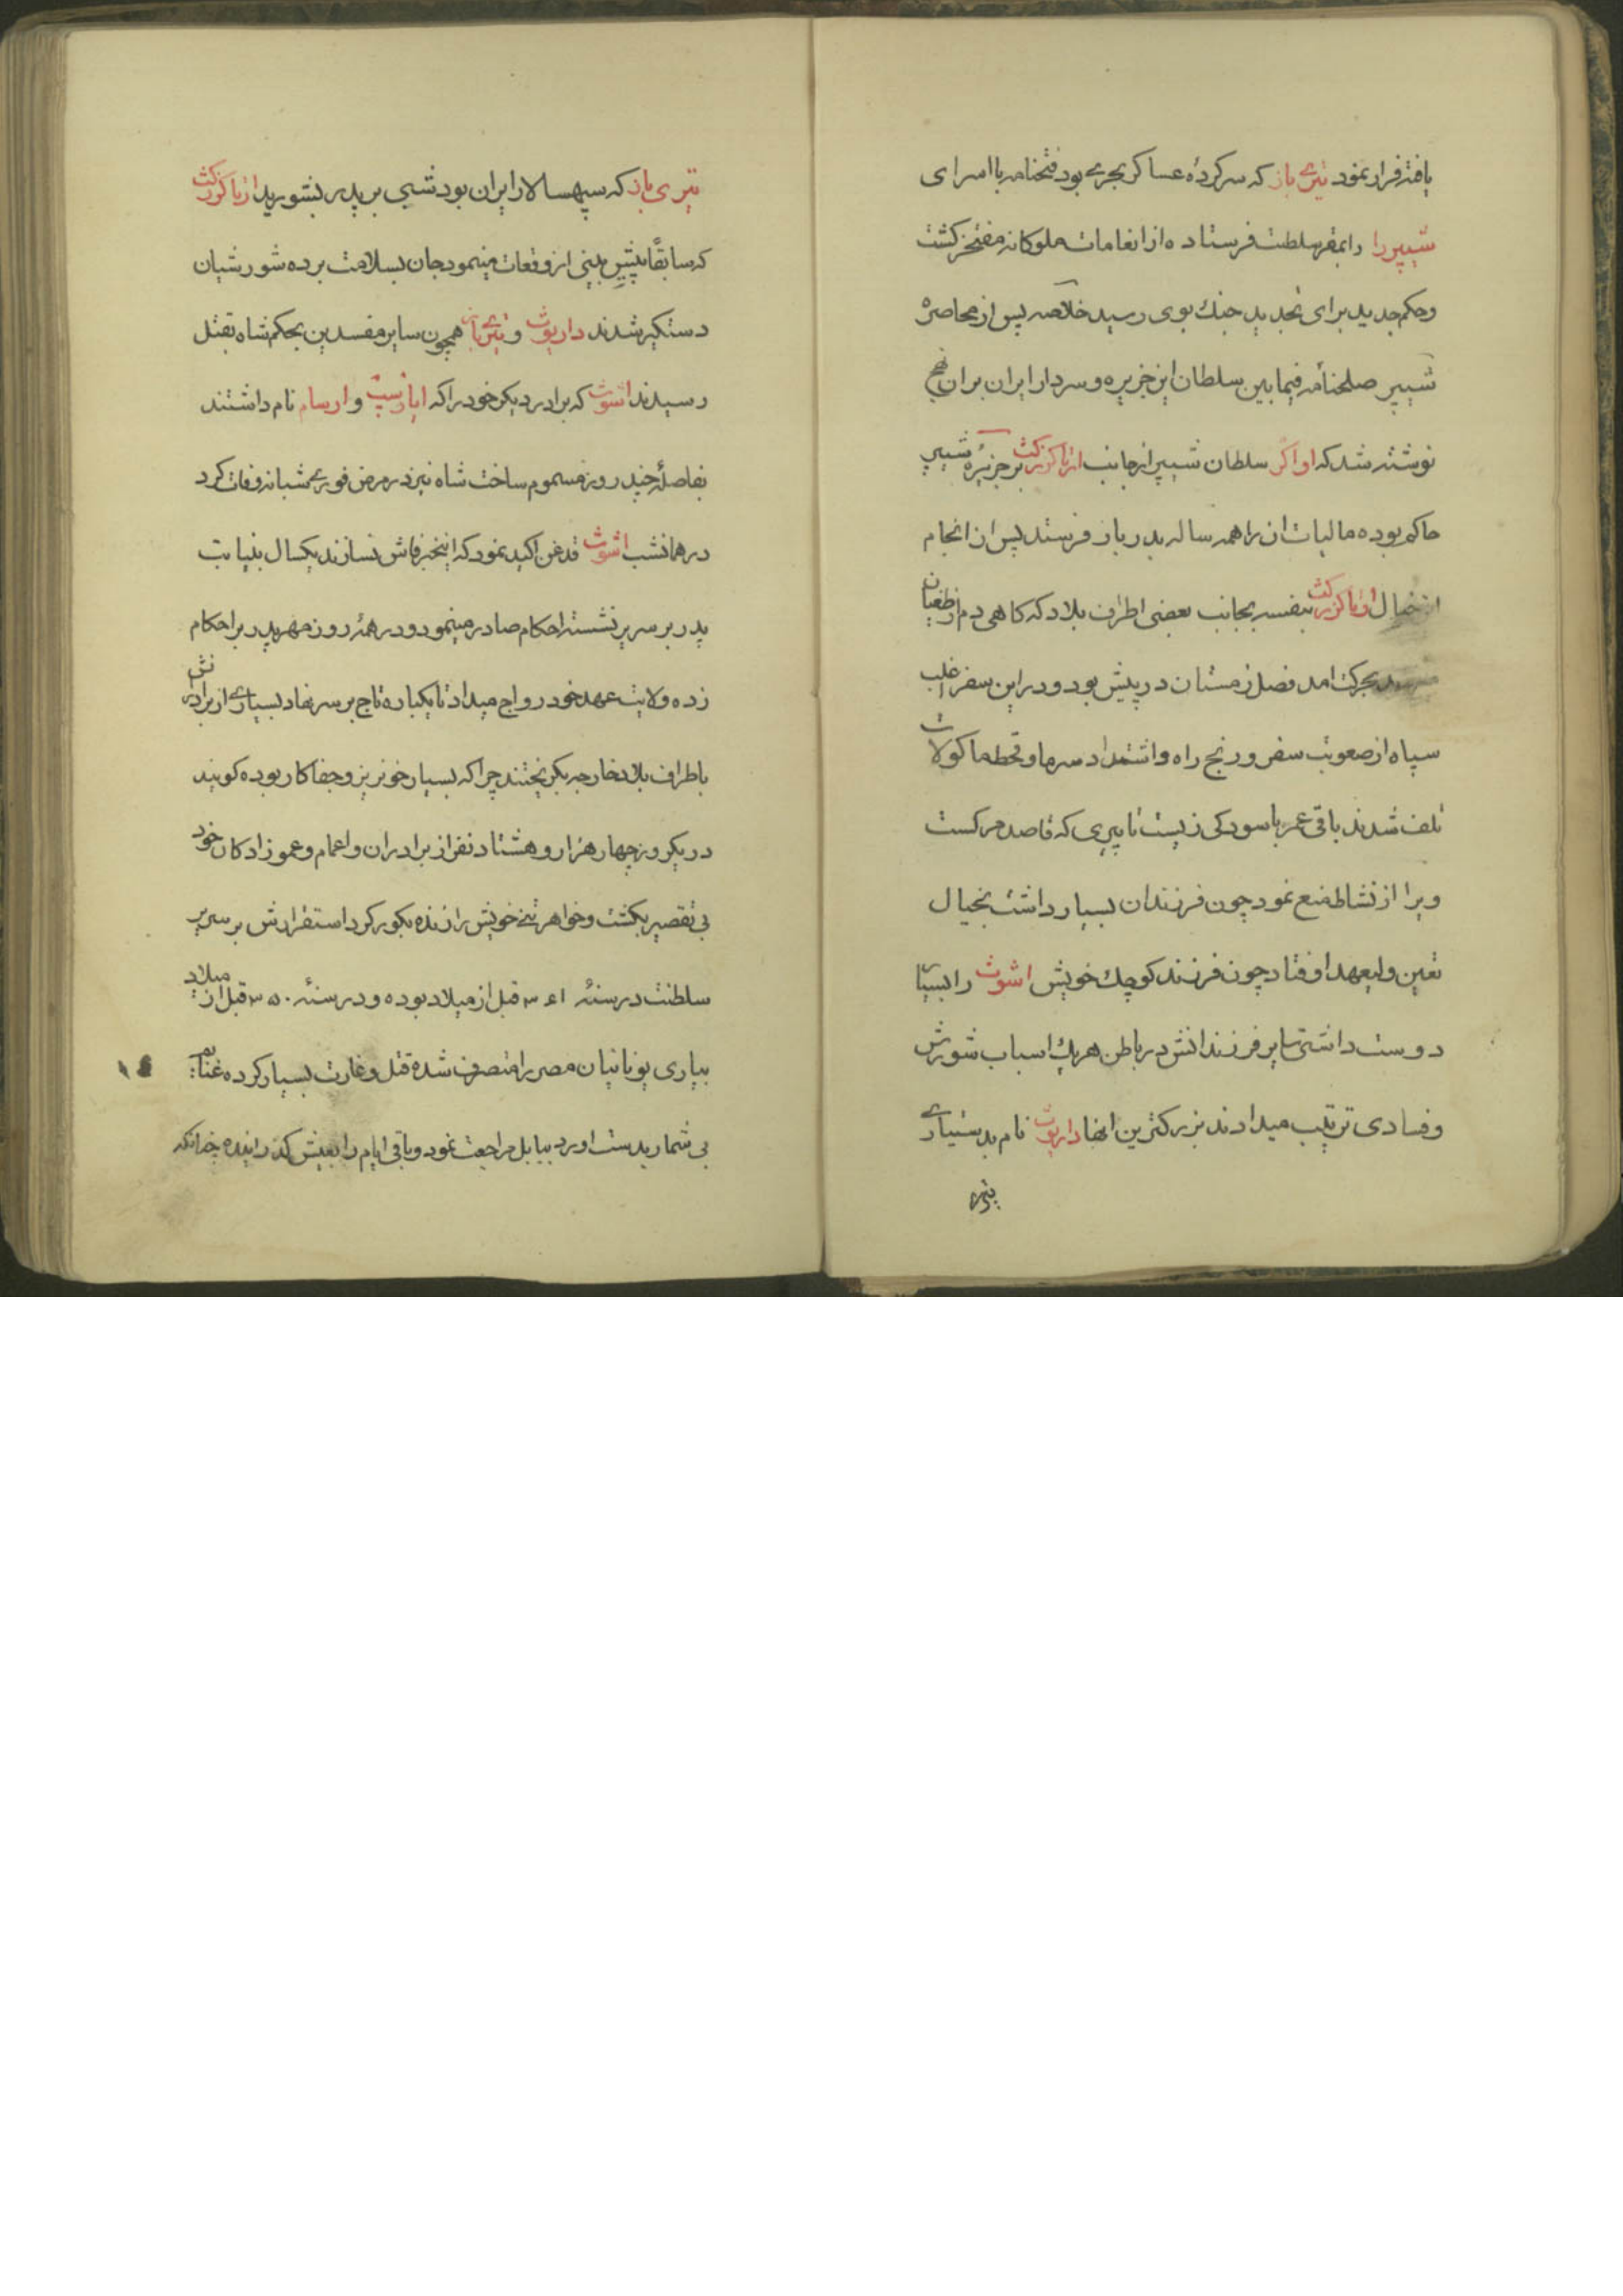 یافته فرار نمود تیری باز که سرکردهٔ عساکر بحری بود فتحنامه با اسرای
شیپر را را بمقر سلطنت فرستاده از انعامات ملوکانه مفتخر کشت
و حکم جدید برای تجدید جنك بوی رسید خلاصه پس از محاصرهٔ
شیپر صلحنامه فیمابین سلطان این جزیره و سردار ایران بر ان نهج
نوشته شد که اواکر سلطان شیپر از جانب ارتاکزرکث بر جزیرهٔ شیپر
حاکم بوده مالیات ان را همه ساله بدربار فرستد پس از انجام
این خیال ارتاکزرکث بنفسه بجانب بعضی اطراف بلاد که کاهی دم از طغیان
بحرکت امد فصل زمستان در پیش بود و در این سفر اغلب
سپاه از صعوبت سفر و رنج راه و اشتداد سرما و قحط ماکولات
تلف شدند باقی عمر باسودکی زیست تا پیری که قاصد مرکست
ویرا از نشاط منع نمود چون فرزندان بسیار داشت بخیال
تعین ولیعهد اوفتاد چون فرزند کوچك خویش اشوث را بسیار
دوست داشتی سایر فرزندانش در باطن هریك اسباب شورش
و فسادی ترتیب میدادند بزرکترین انها داریوث نام بدستیاری
تیری باز که سپهسالار ایران بود شبی بر پدر بشورید ارتاکزرکث
که سابقاً پیش بینی از وقعات مینمود جان بسلامت برده شورشیان
دستکیر شدند داریوث و تیری باز همچون سایر مفسدین بحکم شاه بقتل
رسیدند اشوث که برادر دیکر خود را که اپارسپ و ارسام نام داشتند
بفاصلهٔ چند روز مسموم ساخت شاه نیز در مرض فوری شبانه وفات کرد
در همانشب اشوث قدغن اکید نمود که اینخبر فاش نسازند یکسال بنیابت
پدر بر سریر نشسته احکام صادر مینمود و در همهٔ روز مهر پدر بر احکام
زده ولایت عهد خود رواج میداد تا یکباره تاج بر سر نهاد بسیاری از برادرانش
باطراف بلاد خارجه بکریختند چرا که بسیار خونریز و جفا کار بوده کویند
در یکروز چهار هزار و هشتاد نفر از برادران و اعمام و عموزادکان خود
بی تقصیر بکشت و خواهر تنی خویش را زنده بکور کرد استقرارش بر سریر
سلطنت در سنهٔ ۳۶۱ قبل از میلاد بوده و در سنهٔ ۳۵۰ قبل از میلاد
بیاری یونانیان مصر را متصرف شده قتل و غارت بسیار کرده غنایم
بی شمار بدست اورد ببابل مراجعت نمود و باقی ایام را بعیش کذرانیده چنانکه